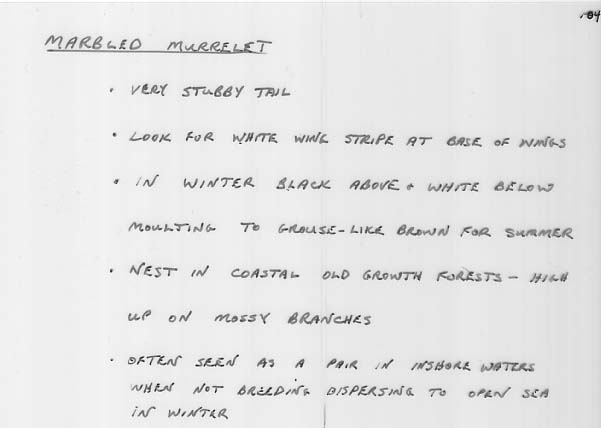 104
MARBLED MURRELET
• VERY STUBBY TAIL
• LOOK FOR WHITE WING STRIPE AT BASE OF WINGS
• IN WINTER BLACK ABOVE + WHITE BELOW
MOULTING TO GROUSE-LIKE BROWN FOR SUMMER
• NEST IN COASTAL OLD GROWTH FORESTS - HIGH
UP ON MOSSY BRANCHES
• OFTEN SEEN AS A PAIR IN INSHORE WATERS
WHEN NOT BREEDING DISPERSING TO OPEN SEA
IN WINTER